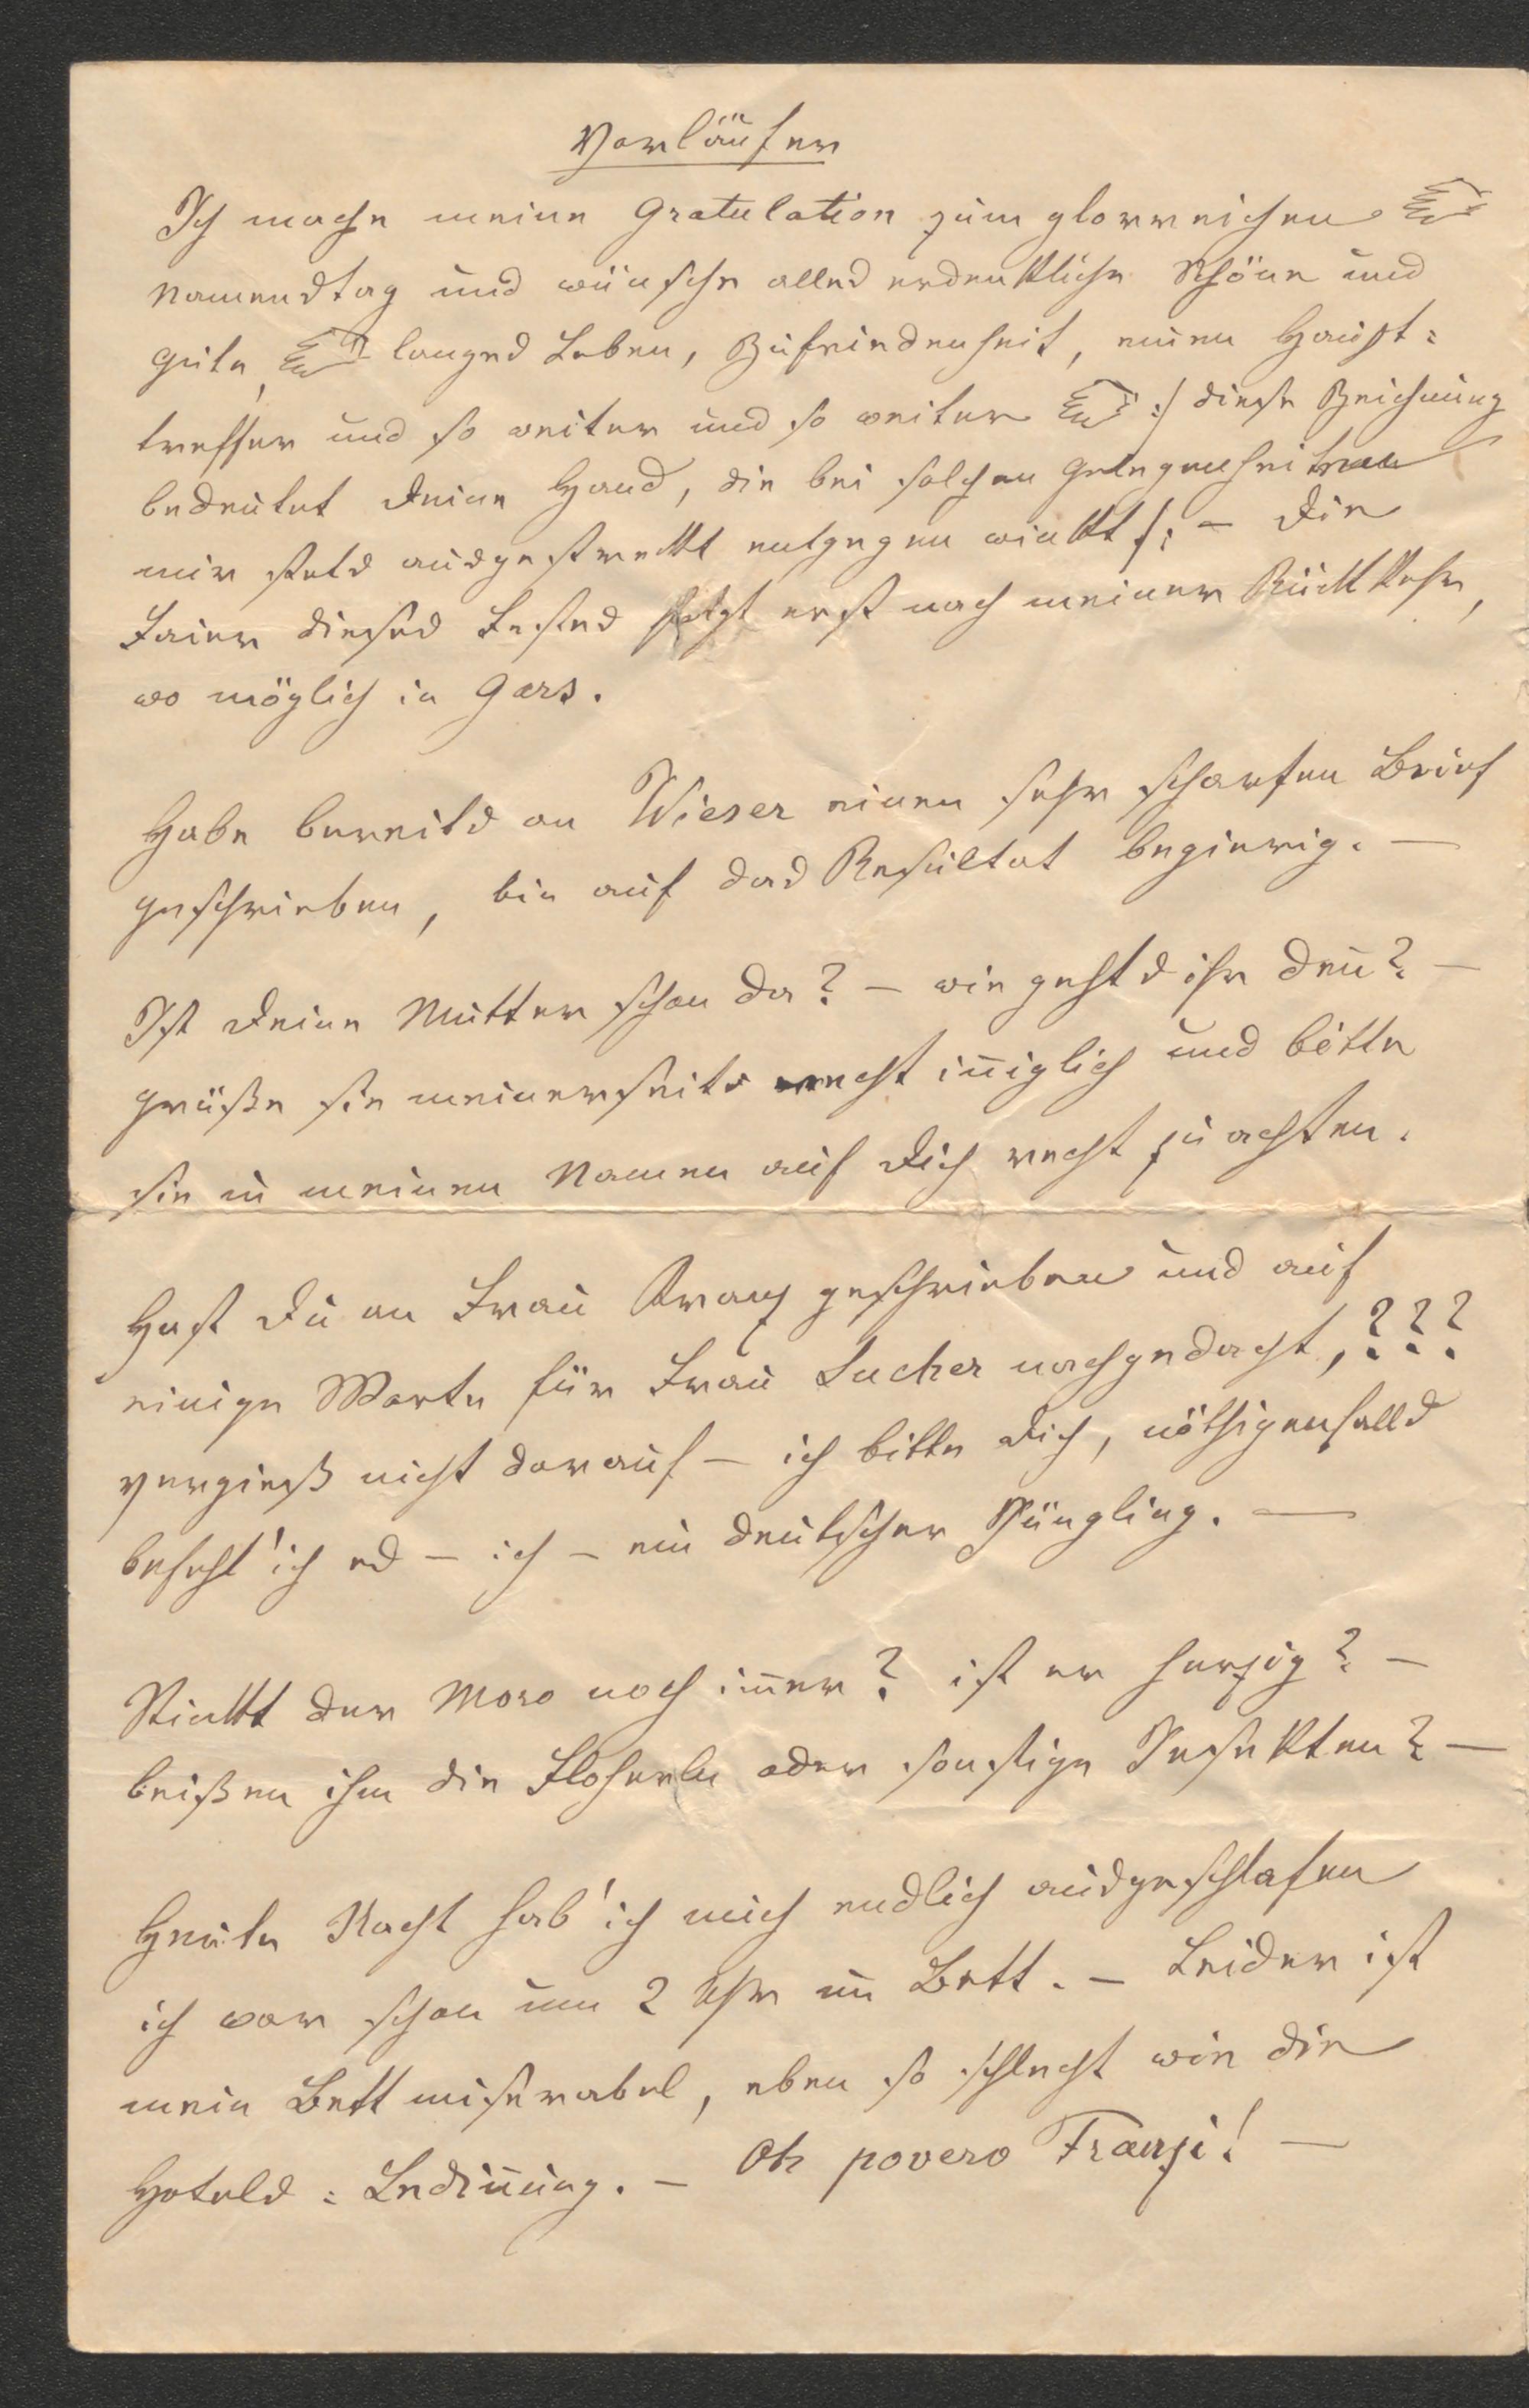 Vorläufer
Ich mache meine Gratulation zum glorreichen
Namenstag und wünsche alles erdenkliche Schöne und
Gute, langes Leben, Zufriedenheit, einen Haupt=
treffer und so weiter und so weiter :/ diese Zeichnung
bedeutet Deine Hand, die bei solchen Gelegenheiten
mir stets ausgestreckt entgegen winkt /: – Die
Feier dieses Festes folgt erst nach meiner Rückkehr,
wo möglich in Gars.
Habe bereits an Wieser einen sehr scharfen Brief
geschrieben, bin auf das Resultat begierig. —
Ist Deine Mutter schon da? – wie geht's ihr den̄? –
grüße sie meinerseits recht in̄iglich und bitte
sie in meinen Namen auf Dich recht zu achten.
Hast Du an Frau geschrieben und auf
einige Worte für Frau Lucher nachgedacht, ???
vergieß nicht darauf – ich bitte Dich, nöthigenfalls
befehl' ich es – ich – ein deutscher Jüngling. —
Stinkt der Moro noch im̄er? ist er herzig? –
beißen ihm die Floherln oder sonstige Insekten? –
Heute Nacht hab' ich mich endlich ausgeschlafen
ich war schon um 2 Uhr im Bett. – Leider ist
mein Bett miserabel, eben so schlecht wie die
Hotels = Bedien̄ung. – Oh povero Franzi! —